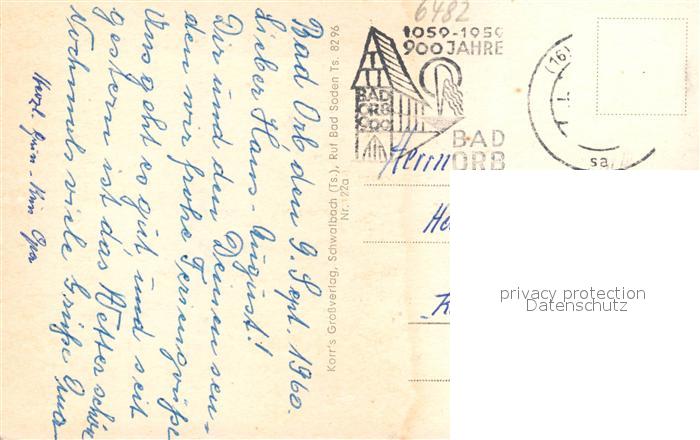 6482
1059-1959
900 JAHRE
BAD
ORB
900
BAD
ORB
(16)
Bad Orb den 9. Sept. 1960.
Lieber Hans-August!
Dir und den Deinen sen-
den wir frohe Feriengrüße
Uns geht es gut und seit
gestern ist das Wetter schön
Nochmals viele Grüße
Opa
Korr's Großverlag, Schwalbach (Ts.), Ruf Bad Soden Ts. 8296
Nr. 22a
Herrn
privacy protection
Datenschutz